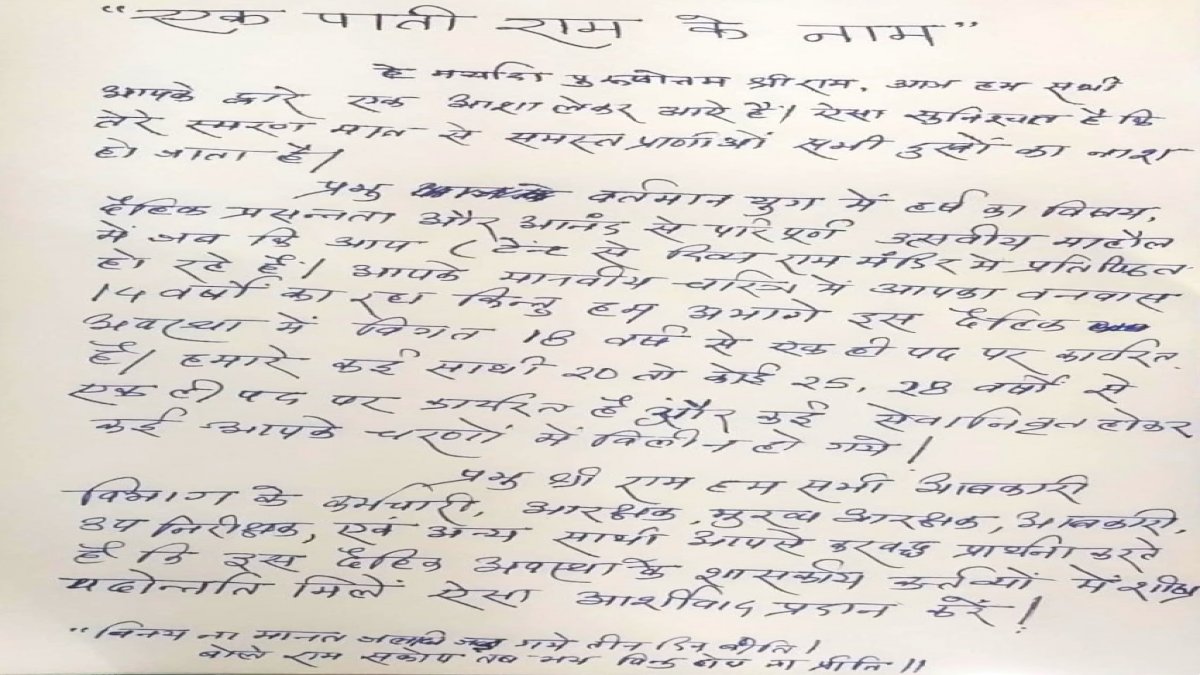 "एक पाती राम के नाम"
हे मर्यादा पुरुषोत्तम श्रीराम, आज हम सभी
आपके द्वारे एक आशा लेकर आये हैं। ऐसा सुनिश्चत है कि
तेरे स्मरण मात्र से समस्त प्राणीओं सभी दुखों का नाश
हो जाता है।
प्रभु वर्तमान युग में हर्ष का विषय,
दैहिक प्रसन्नता और आनंद से परिपूर्ण उत्सवीय माहौल
में जब कि आप (टेन्ट से दिव्य राम मंदिर मे प्रतिष्ठित
हो रहे हैं। आपके मानवीय चरित्र में आपका वनवास
14 वर्षों का रहा किन्तु हम अभागे इस दैहिक
अवस्था में विगत 18 वर्ष से एक ही पद पर कार्यरत
हैं। हमारे कई साथी 20 तो कोई 25, 28 वर्षों से
एक ही पद पर कार्यरत हैं और कई सेवानिवृत होकर
कई आपके चरणों में विलीन हो गये।
प्रभु श्री राम हम सभी आबकारी
विभाग के कर्मचारी, आरक्षक, मुख्य आरक्षक, आबकारी,
उप निरीक्षक, एवं अन्य साथी आपसे करवद्ध प्रार्थना करते
हैं कि इस दैहिक अवस्था के शासकीय कर्तव्यों में शीघ्र
पदोन्नति मिलें ऐसा आर्शीवाद प्रदान करें!
"विनय ना मानत जलधि गये तीन दिन बीति।
बोले राम सकोप तब भय बिनु होय ना प्रीति॥